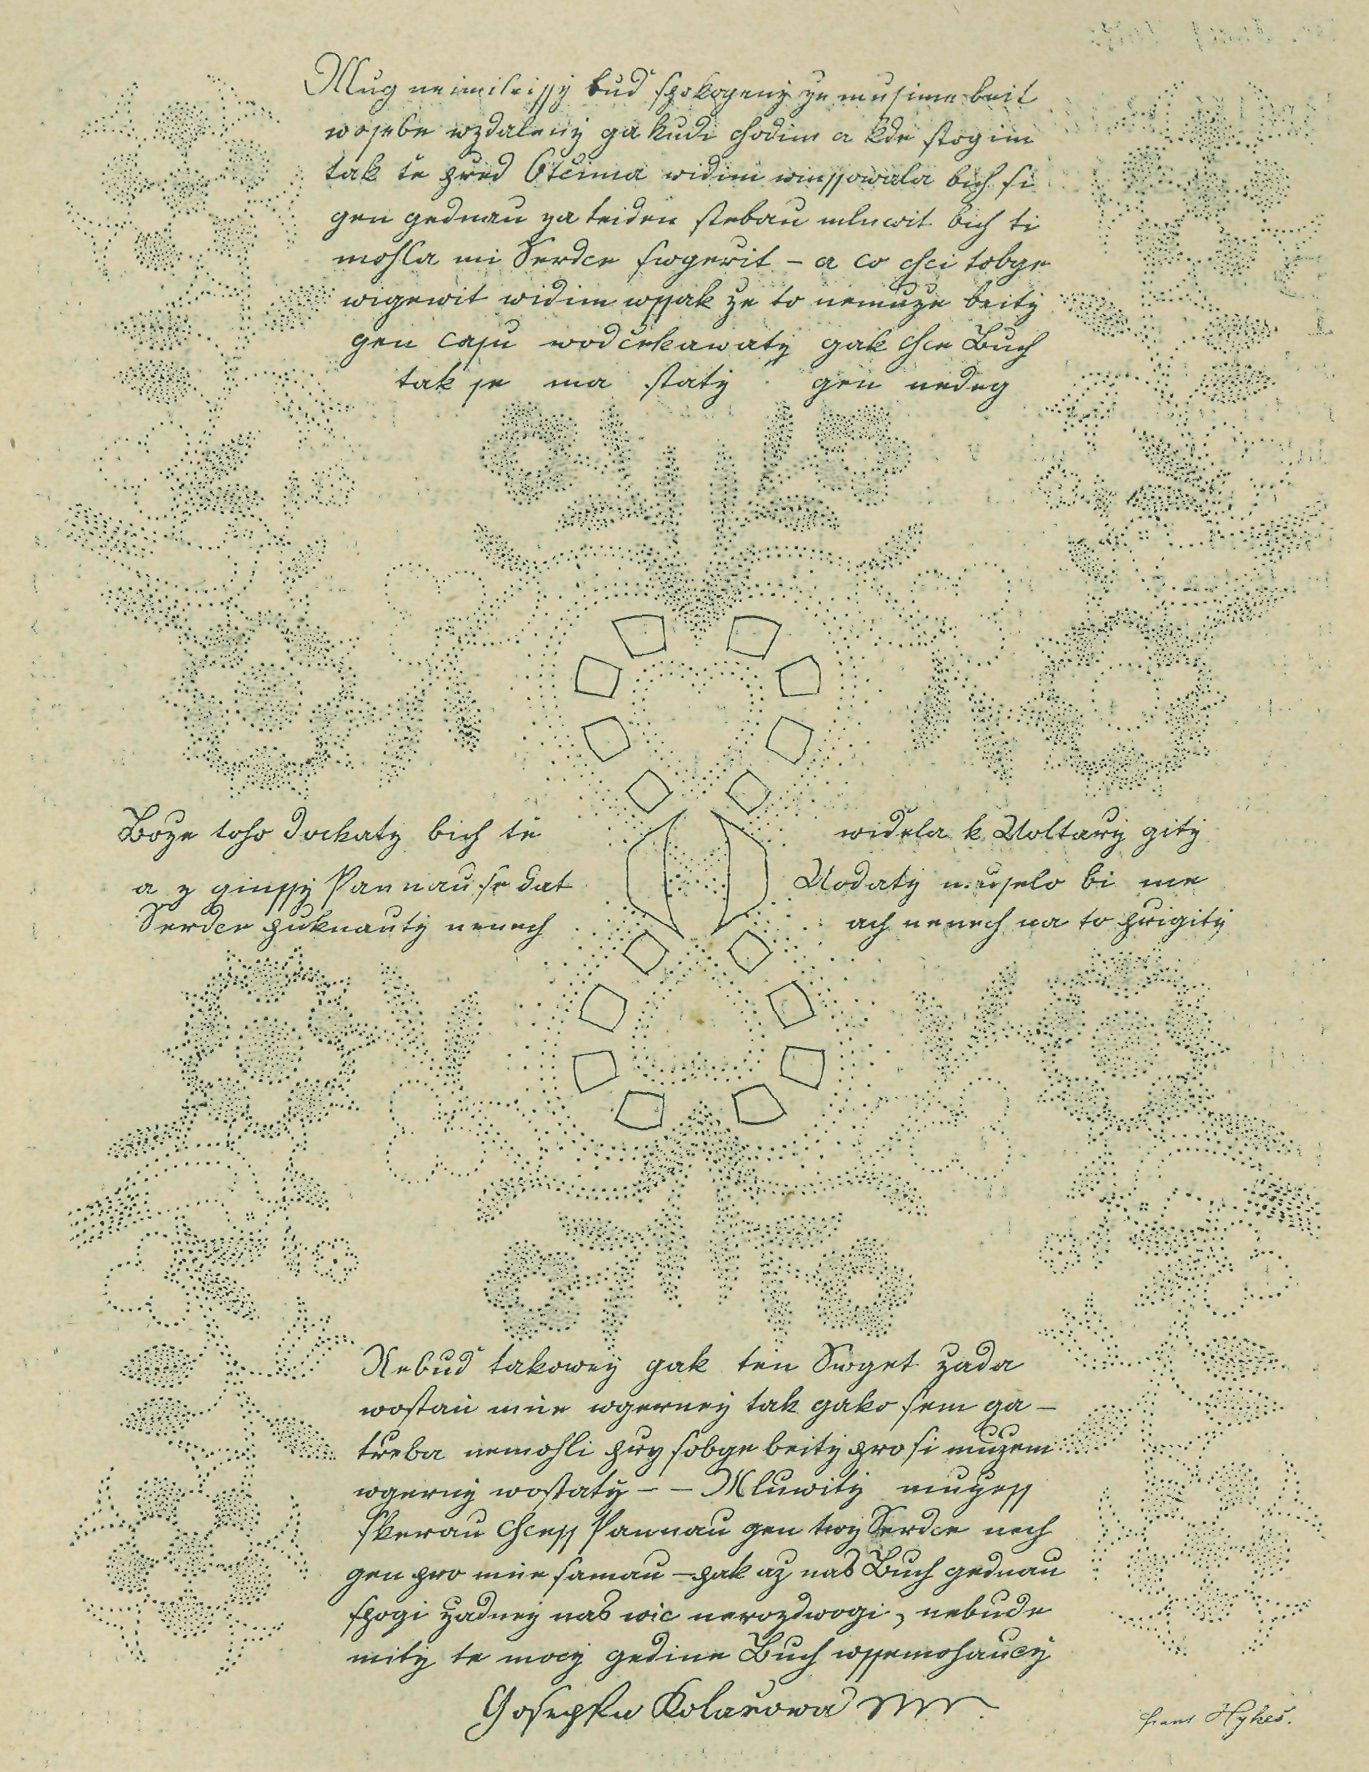 Mug neimileissy bud spokogeny ze musime beit
wosebe wzdaleny ga kudi chodim a kde stogim
tak tě pred Otčima widim winssowala bich si
gen gednau za teiden stebau mluwit bich ti
mohla mi Serdce swgerit – a co chci tobge
wigewit widim wssak ze to nemuze beity
gen casu wodčekawaty gak chce Buch
tak se ma staty gen nedeg
Boze toho dočkaty bich tě widela k Uoltary gity
a z ginssy Pannau se dat Uodaty muselo bi me
Serdce puknauty nenech ach nenech na to prigity
Nebud takowey gak ten Swget zada
wostaň mne wgerney tak gako sem ga –
třeba nemohli pry sobge beity pro si muzem
wgerny wostaty – – Mluwity muzess
skerau chcess Pannau gen twy Serdce nech
gen pro mne samau – pak az nas Buch gednau
spogi zadney nas wic nerozdwogi, nebude
mity te mocy gedine Buch wssemohaucy
Gosepfa Kolarowa
Hykeš.